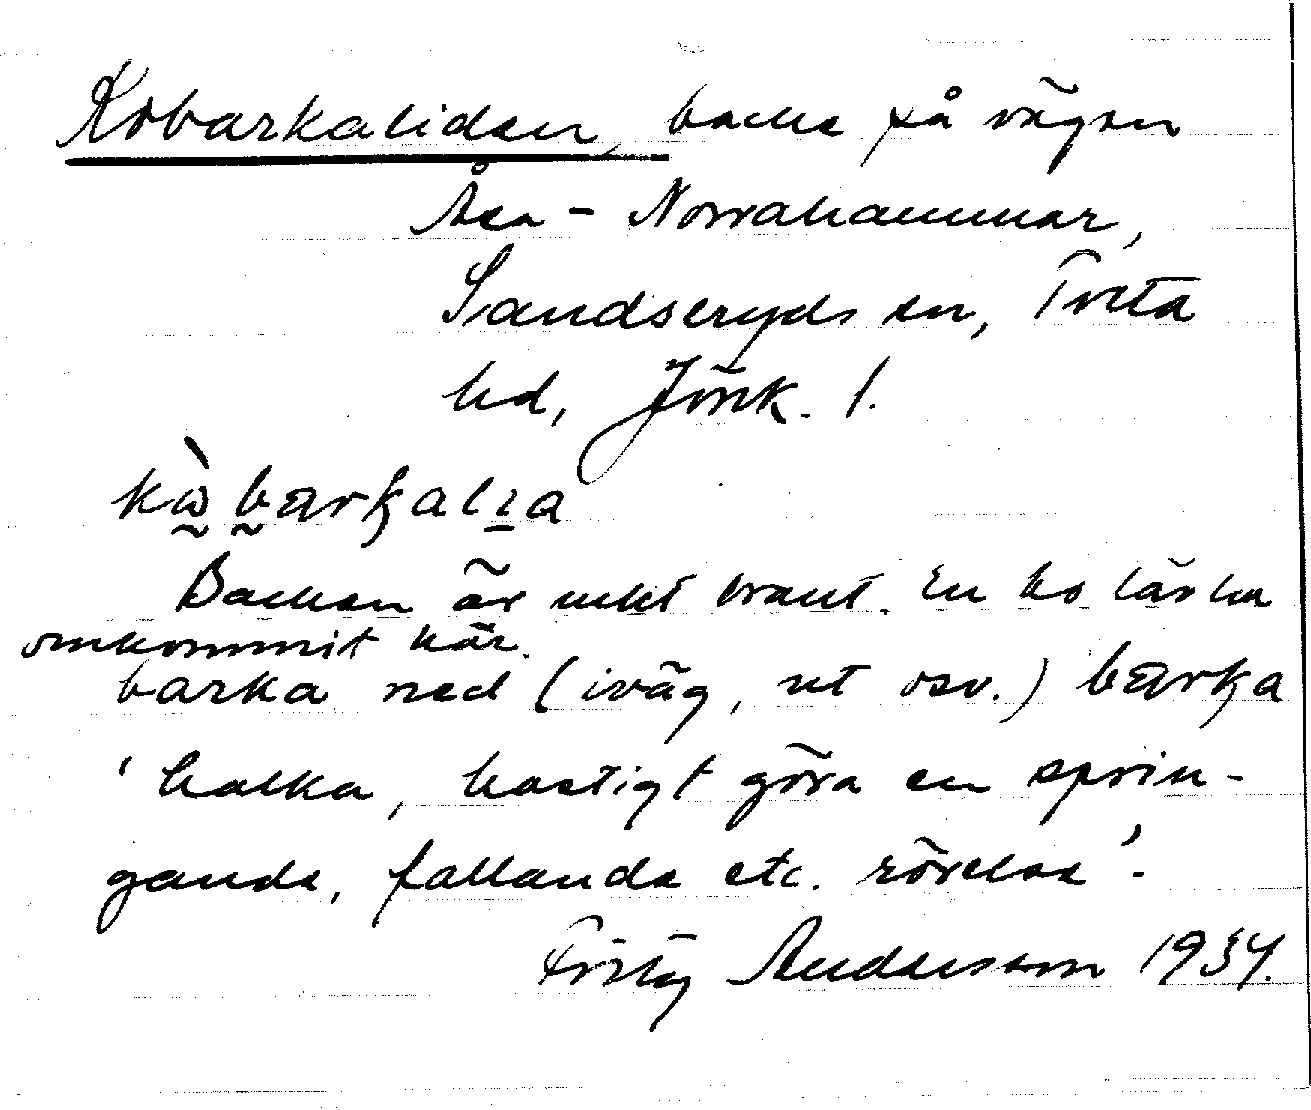 Kobarkaliden, backe på vägen
Åsa - Norrahammar,
Sandseryds sn, Tveta
hd, Jönk. l.
Backen är mkt brant. En ko lär ha
omkommit här.
barka ned (iväg, ut osv.) barka
'halka, hastigt göra en sprin-
gande, fallande etc. rörelse'.
Andersson 1934.